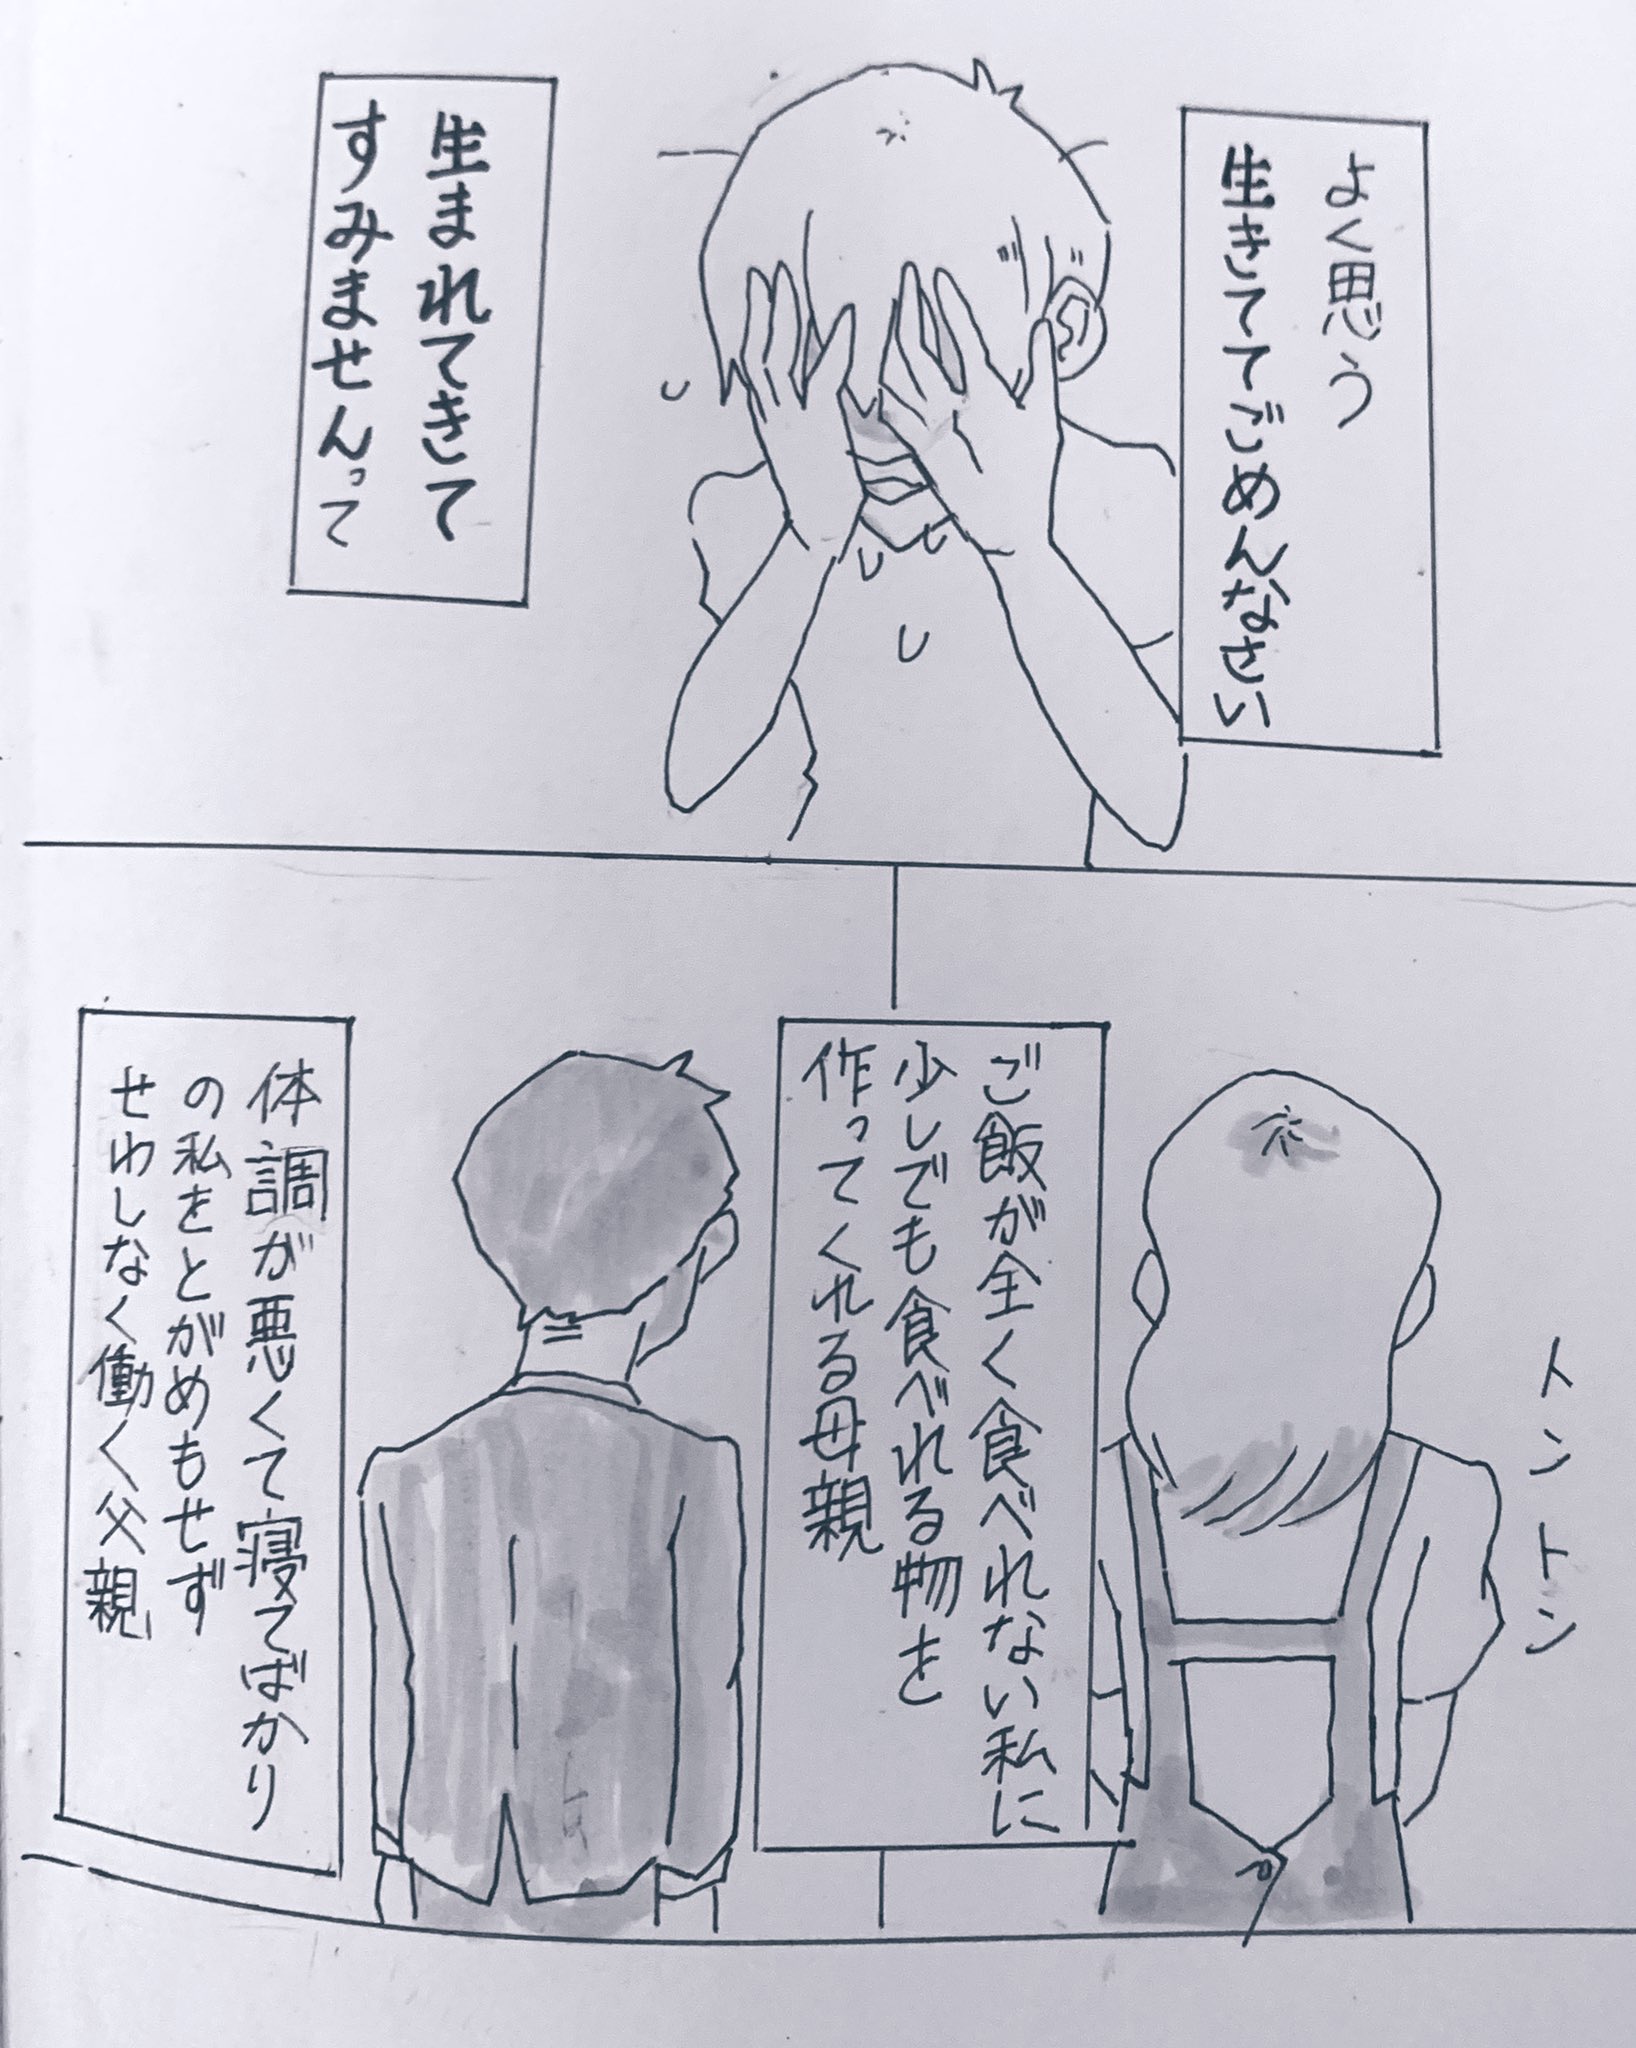 よく思う
生きててごめんなさい
生まれてきて
すみませんって
トントン
ご飯が全く食べれない私に
少しでも食べれる物を
作ってくれる母親
体調が悪くて寝てばかり
の私をとがめもせず
せわしなく働く父親